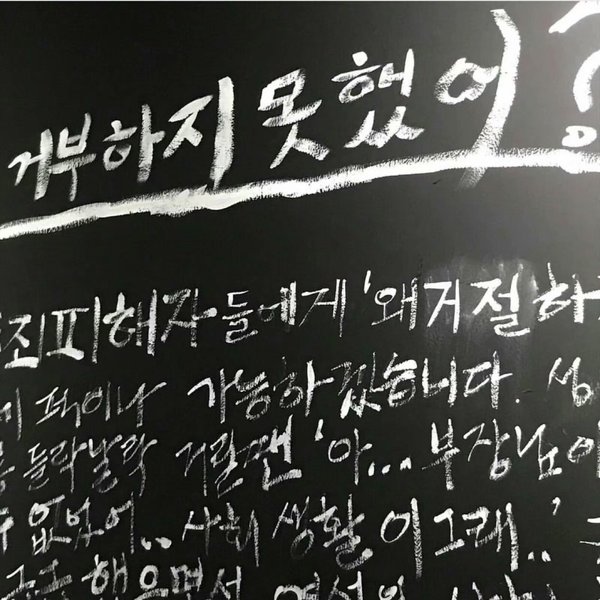 거부하지 못했어?
죄피해자들에게 '왜 거절하
퍽이나 가능하겠습니다. 성
들락날락 거릴땐 '아... 부장님이
없었어.. 사회 생활이 그래..'
했으면서 여성의